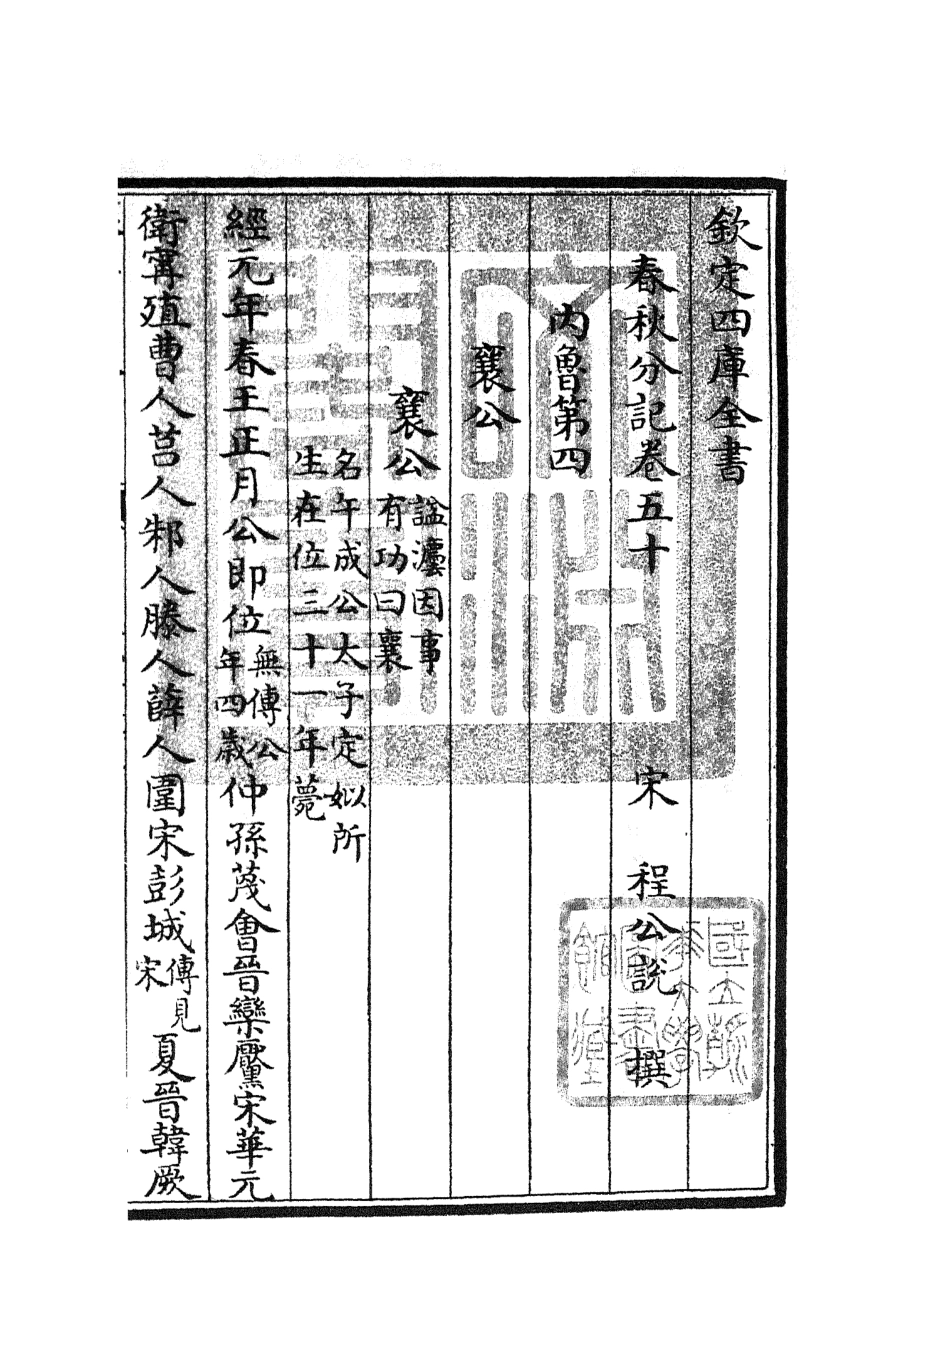 欽定四庫全書
春秋分記卷五十 宋 程公說 撰
內魯第四
襄公
襄公 諡灋因事
有功曰襄
名午成公太子定姒所
生在位三十一年薨
經元年春王正月公即位 無傳公
年四歲 仲孫蔑會晉欒黶宋華元
衛甯殖曹人莒人邾人滕人薛人圍宋彭城 傳見
宋 夏晉韓厥